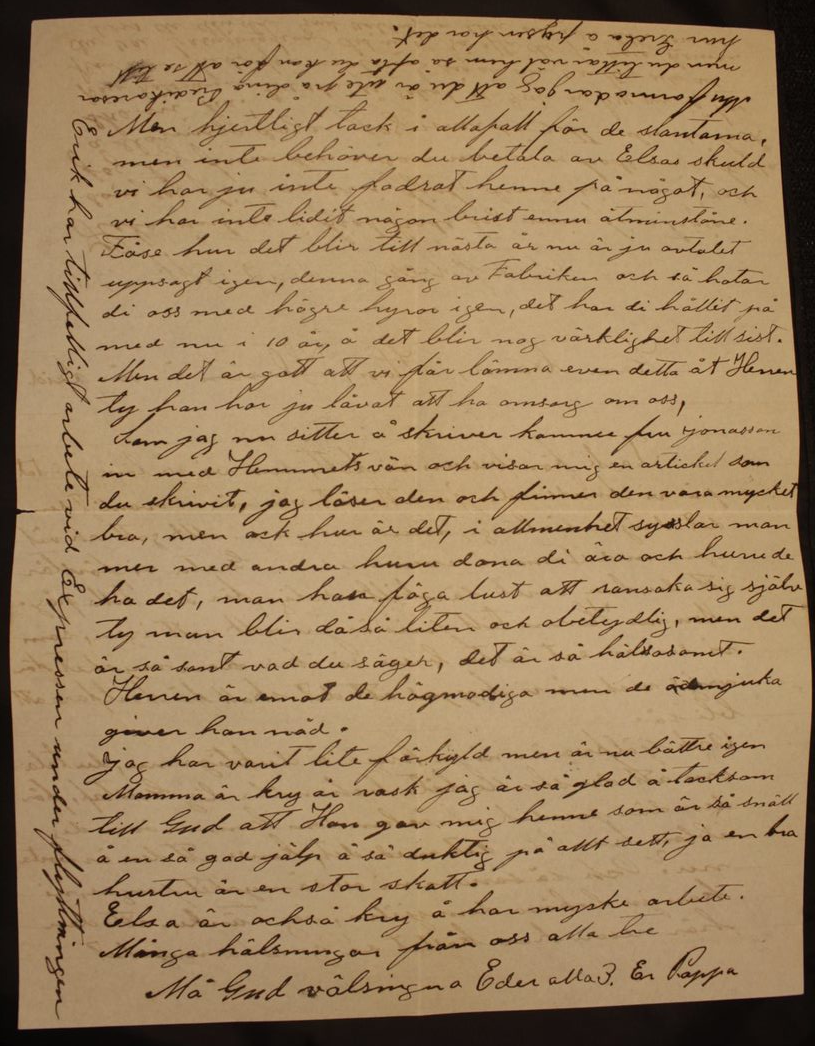 Men hjertligt tack i allafall för de slantarna,
men inte behöver du betala av Elsas skuld
vi har ju inte fodrat henne på något, och
vi har inte lidit någon brist ennu åtminstone.
Fåse hur det blir till nästa år nu är ju avtalet
uppsagt igen, denna gång av Fabriken och så hotar
di oss med högre hyror igen, det har di hållit på
med nu i 10 år, å det blir nog värklighet till sist.
Men det är gott att vi får lämna även detta åt Herren
ty han har ju låvat att ha omsorg om oss,
Som jag nu sitter å skriver kommer fru Jonasson
in med Hemmets vän och visar mig en artickel som
du skrivit, jag läser den och finner den vara mycket
bra, men ock hur är det, i allmenhet sysslar man
mer med andra huru dona di ära och hurude
ha det, man har föga lust att ransaka sig själv
ty man blir då så liten och obetydlig, men det
är så sant vad du säger, det är så hälsosamt.
Herren är emot de högmodiga men de ödmjuka
giver han nåd.
jag har varit lite förkyld men är nu bättre igen
Mamma är kry är rask jag är så glad å tacksam
till Gud att Han gav mig henne som är så snäll
å en så god jälp å så duktig på allt sett, ja en bra
hustru är en stor skatt.
Elsa är också kry å har myske arbete.
Många hälsningar från oss alla tre
Må Gud välsingna Eder alla 3. Er Pappa
Erik har tillfelligt arbete vid Expressen under flyttningen
Nu förmodar jag att du är ute på dina Predikoresor
men du tittar väl hem så ofta du kan för att se till
hur Greta å pojken har det.